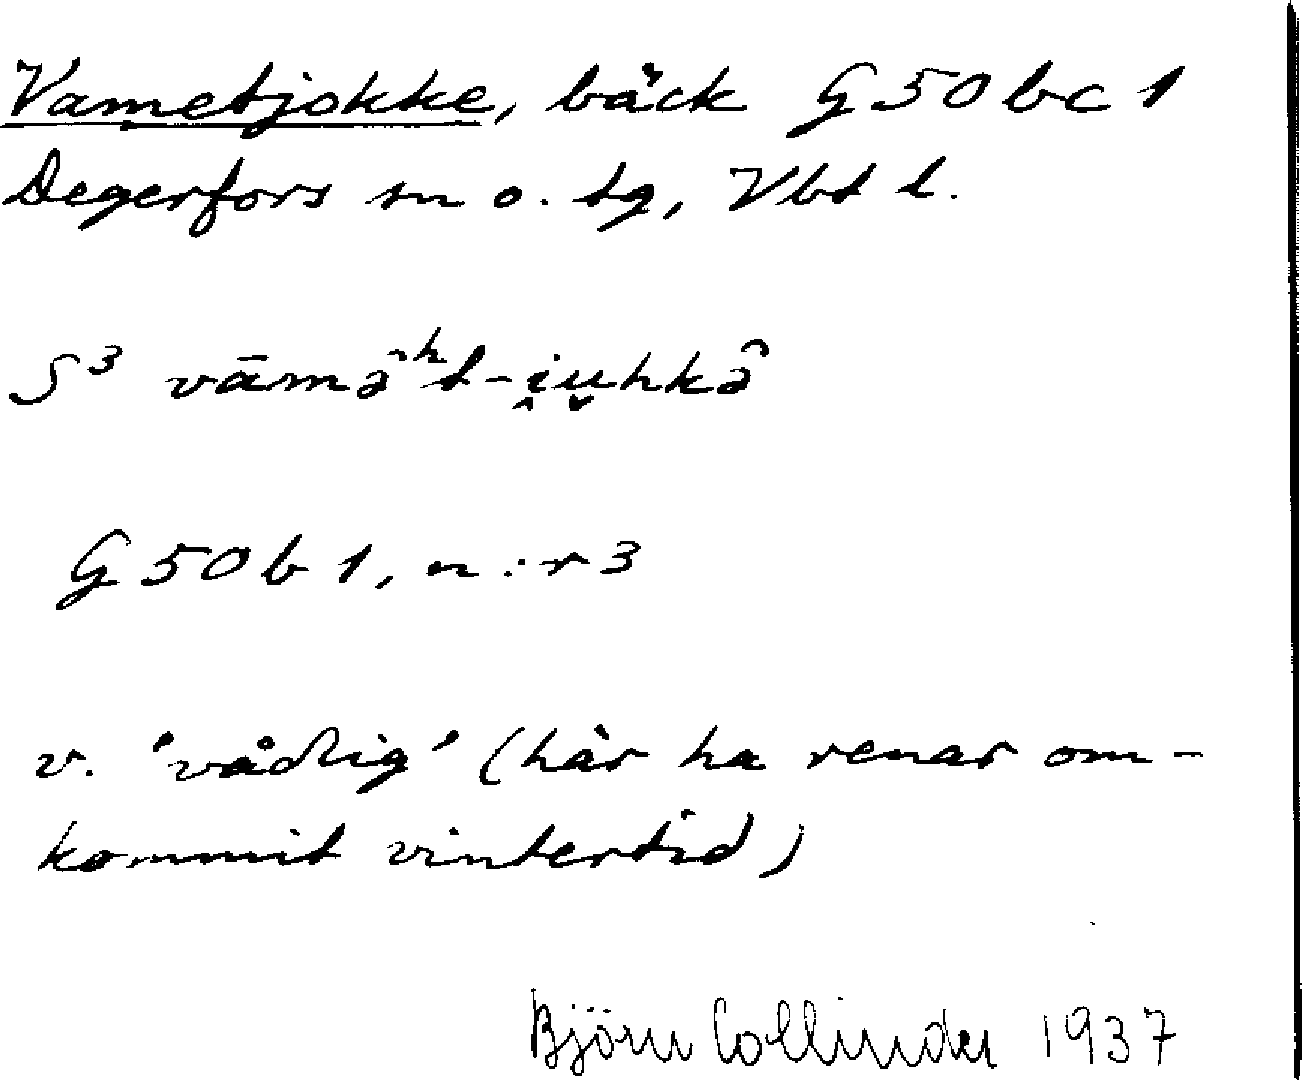 Vametjokke, bäck G 50 bc 1
Degerfors sn o. tg, Vbt l.
S³ vāmə̂ʰt-i̭u̬hkə̂
G 50 b 1, n:r 3
v. 'vådlig' (här ha renar om-
kommit vintertid)
Björn Collinder 1937